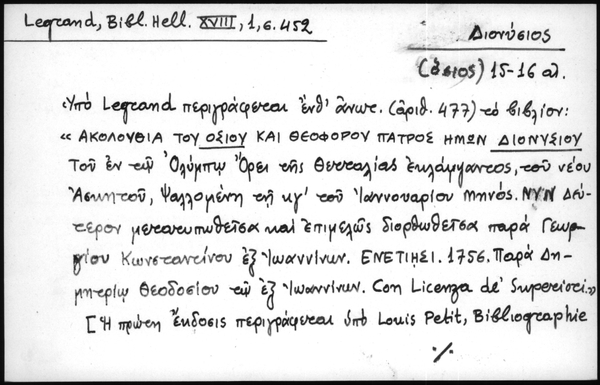 Legrand, Bibl. Hell. XVIII, 1, σ. 452
Διονύσιος
(ὅσιος) 15-16 αἰ.
Ὑπὸ Legrand περιγράφεται ἔνθ' ἄνωτ. (ἀριθ. 477) τὸ βιβλίον:
« ΑΚΟΛΟΥΘΙΑ ΤΟΥ ΟΣΙΟΥ ΚΑΙ ΘΕΟΦΟΡΟΥ ΠΑΤΡΟΣ ΗΜΩΝ ΔΙΟΝΥΣΙΟΥ
τοῦ ἐν τῷ Ὀλύμπῳ Ὄρει τῆς Θετταλίας ἐκλάμψαντος, τοῦ νέου
Ἀσκητοῦ, ψαλλομένη τῇ κγ' τοῦ Ἰαννουαρίου μηνός. ΝΥΝ Δεύ-
τερον μετατυπωθεῖσα καὶ ἐπιμελῶς διορθωθεῖσα παρὰ Γεωρ-
γίου Κωνσταντίνου ἐξ Ἰωαννίνων. ΕΝΕΤΙΗΣΙ. 1756. Παρὰ Δη-
μητρίῳ Θεοδοσίου τῷ ἐξ Ἰωαννίνων. Con Licenza de' Superiori.»
[Ἡ πρώτη ἔκδοσις περιγράφεται ὑπὸ Louis Petit, Bibliographie
./.